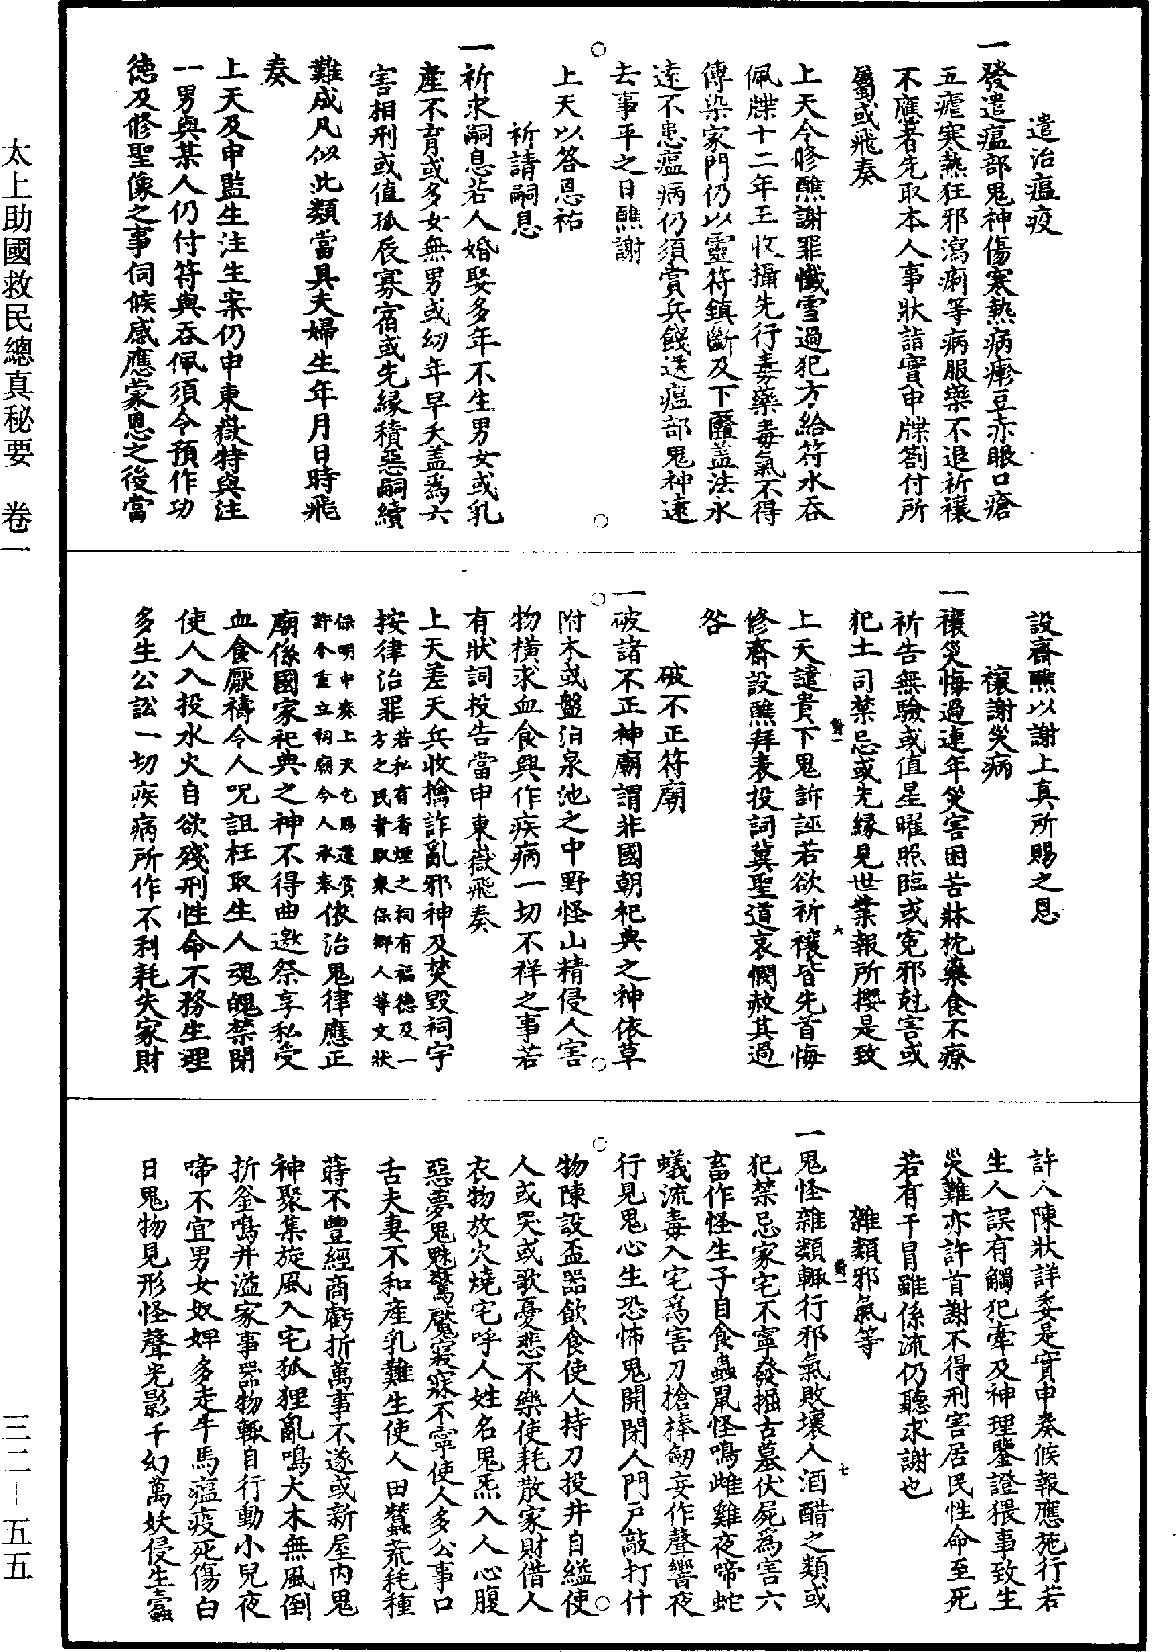 太上助國救民總真秘要　卷一
三二—五五
遣治瘟疫
一發遣瘟部鬼神傷寒熱病瘮豆赤眼口瘡
五瘧寒熱狂邪瀉痢等病服藥不退祈禳
不應者先取本人事狀詣實申牒劄付所
屬或飛奏
上天令修醮謝罪懺雪過犯方給符水吞
佩牒十二年王收攝先行毒藥毒氣不得
傳染家門仍以靈符鎮斷及下醮盖法永
遠不患瘟病仍須賞兵餞送瘟部鬼神遠
去事平之日醮謝
上天以答恩祐
祈請嗣息
一祈求嗣息若人婚娶多年不生男女或乳
產不育或多女無男或幼年早夭盖為六
害相刑或值孤辰寡宿或先緣積惡嗣續
難成凡似此類當具夫婦生年月日時飛
奏
上天及申監生注生案仍申東嶽特與注
一男與某人仍付符與吞佩須令預作功
德及修聖像之事伺候感應蒙恩之後當
設齋醮以謝上真所賜之恩
禳謝災病
一禳災悔過連年災害困苦牀枕藥食不療
祈告無驗或值星曜照臨或寃邪尅害或
犯土司禁忌或先緣見世業報所攖是致
上天譴責下鬼訴誣若欲祈禳皆先首悔
修齋設醮拜表投詞冀聖道哀憫赦其過
咎
破不正符廟
一破諸不正神廟謂非國朝祀典之神依草
附木或盤泊泉池之中野怪山精侵人害
物橫求血食興作疾病一切不祥之事若
有狀詞投告當申東嶽飛奏
上天差天兵收擒詐亂邪神及焚毀祠宇
按律治罪若私有香煙之祠有福德及一
方之民者取索保鄉人等文狀
保明申奏上天乞賜還賞
許令重立祠廟令人承奉依治鬼律應正
廟係國家祀典之神不得曲邀祭享私受
血食厭禱令人呪詛枉取生人魂魄禁閉
使人入投水火自欲殘刑性命不務生理
多生公訟一切疾病所作不利耗失家財
許人陳狀詳委是實申奏候報應施行若
生人誤有觸犯牽及神理鑒證猥事致生
災難亦許首謝不得刑害居民性命至死
若有干冒雖係流仍聽求謝也
雜類邪氣等
一鬼怪雜類輙行邪氣敗壞人酒醋之類或
犯禁忌家宅不寧發掘古墓伏屍為害六
畜作怪生子自食蟲鼠怪鳴雌雞夜啼蛇
蟻流毒入宅為害刀槍棒劒妄作聲響夜
行見鬼心生恐怖鬼開閉人門戶敲打什
物陳設盃器飲食使人持刀投井自縊使
人或哭或歌憂悲不樂使耗散家財借人
衣物放穴燒宅呼人姓名鬼炁入人心腹
惡夢鬼魅驚魘寢寐不寧使人多公事口
舌夫妻不和產乳難生使人田蠶荒耗種
蒔不豐經商虧折萬事不遂或新屋內鬼
神聚集旋風入宅狐狸亂鳴大木無風倒
折釜鳴井溢家事器物輙自行動小兒夜
啼不宜男女奴婢多走牛馬瘟疫死傷白
日鬼物見形怪聲光影千幻萬妖侵生蠹